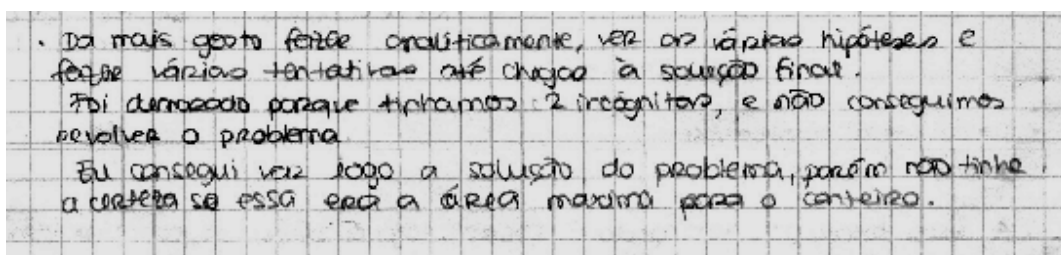 . Dá mais gosto fazer analiticamente, ver as várias hipóteses e
fazer várias tentativas até chegar à solução final.
Foi demorado porque tinhamos 2 incógnitas, e não conseguimos
revolver o problema
Eu consegui ver logo a solução do problema, porém não tinha
a certeza se essa era a área maxima para o canteiro.